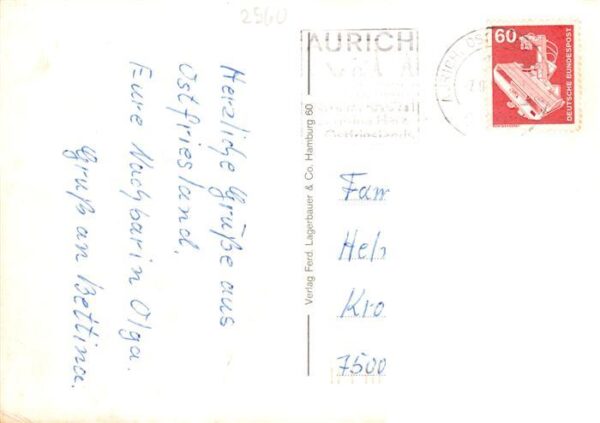 2560
Herzliche Grüße aus
Ostfriesland.
Eure Nachbarin Olga.
Gruß an Bettina.
Verlag Ferd. Lagerbauer & Co. Hamburg 60
AURICH
Ostfrieslands
60
DEUTSCHE BUNDESPOST
Fam
Hel
Kro
7500